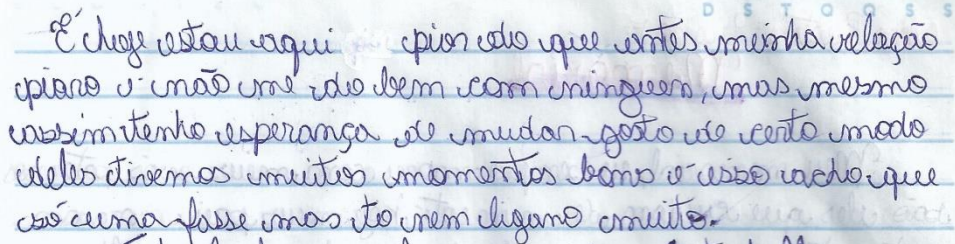 D S T Q Q S S
É hoje estou aqui pior do que antes minha relação
piaro i não me do bem com ninguen, mas mesmo
assim tenho esperança de mudar gosto de certo modo
deles tivemos muitos momentos bons i isso acho que
só uma fasse mas to nem ligano muito.